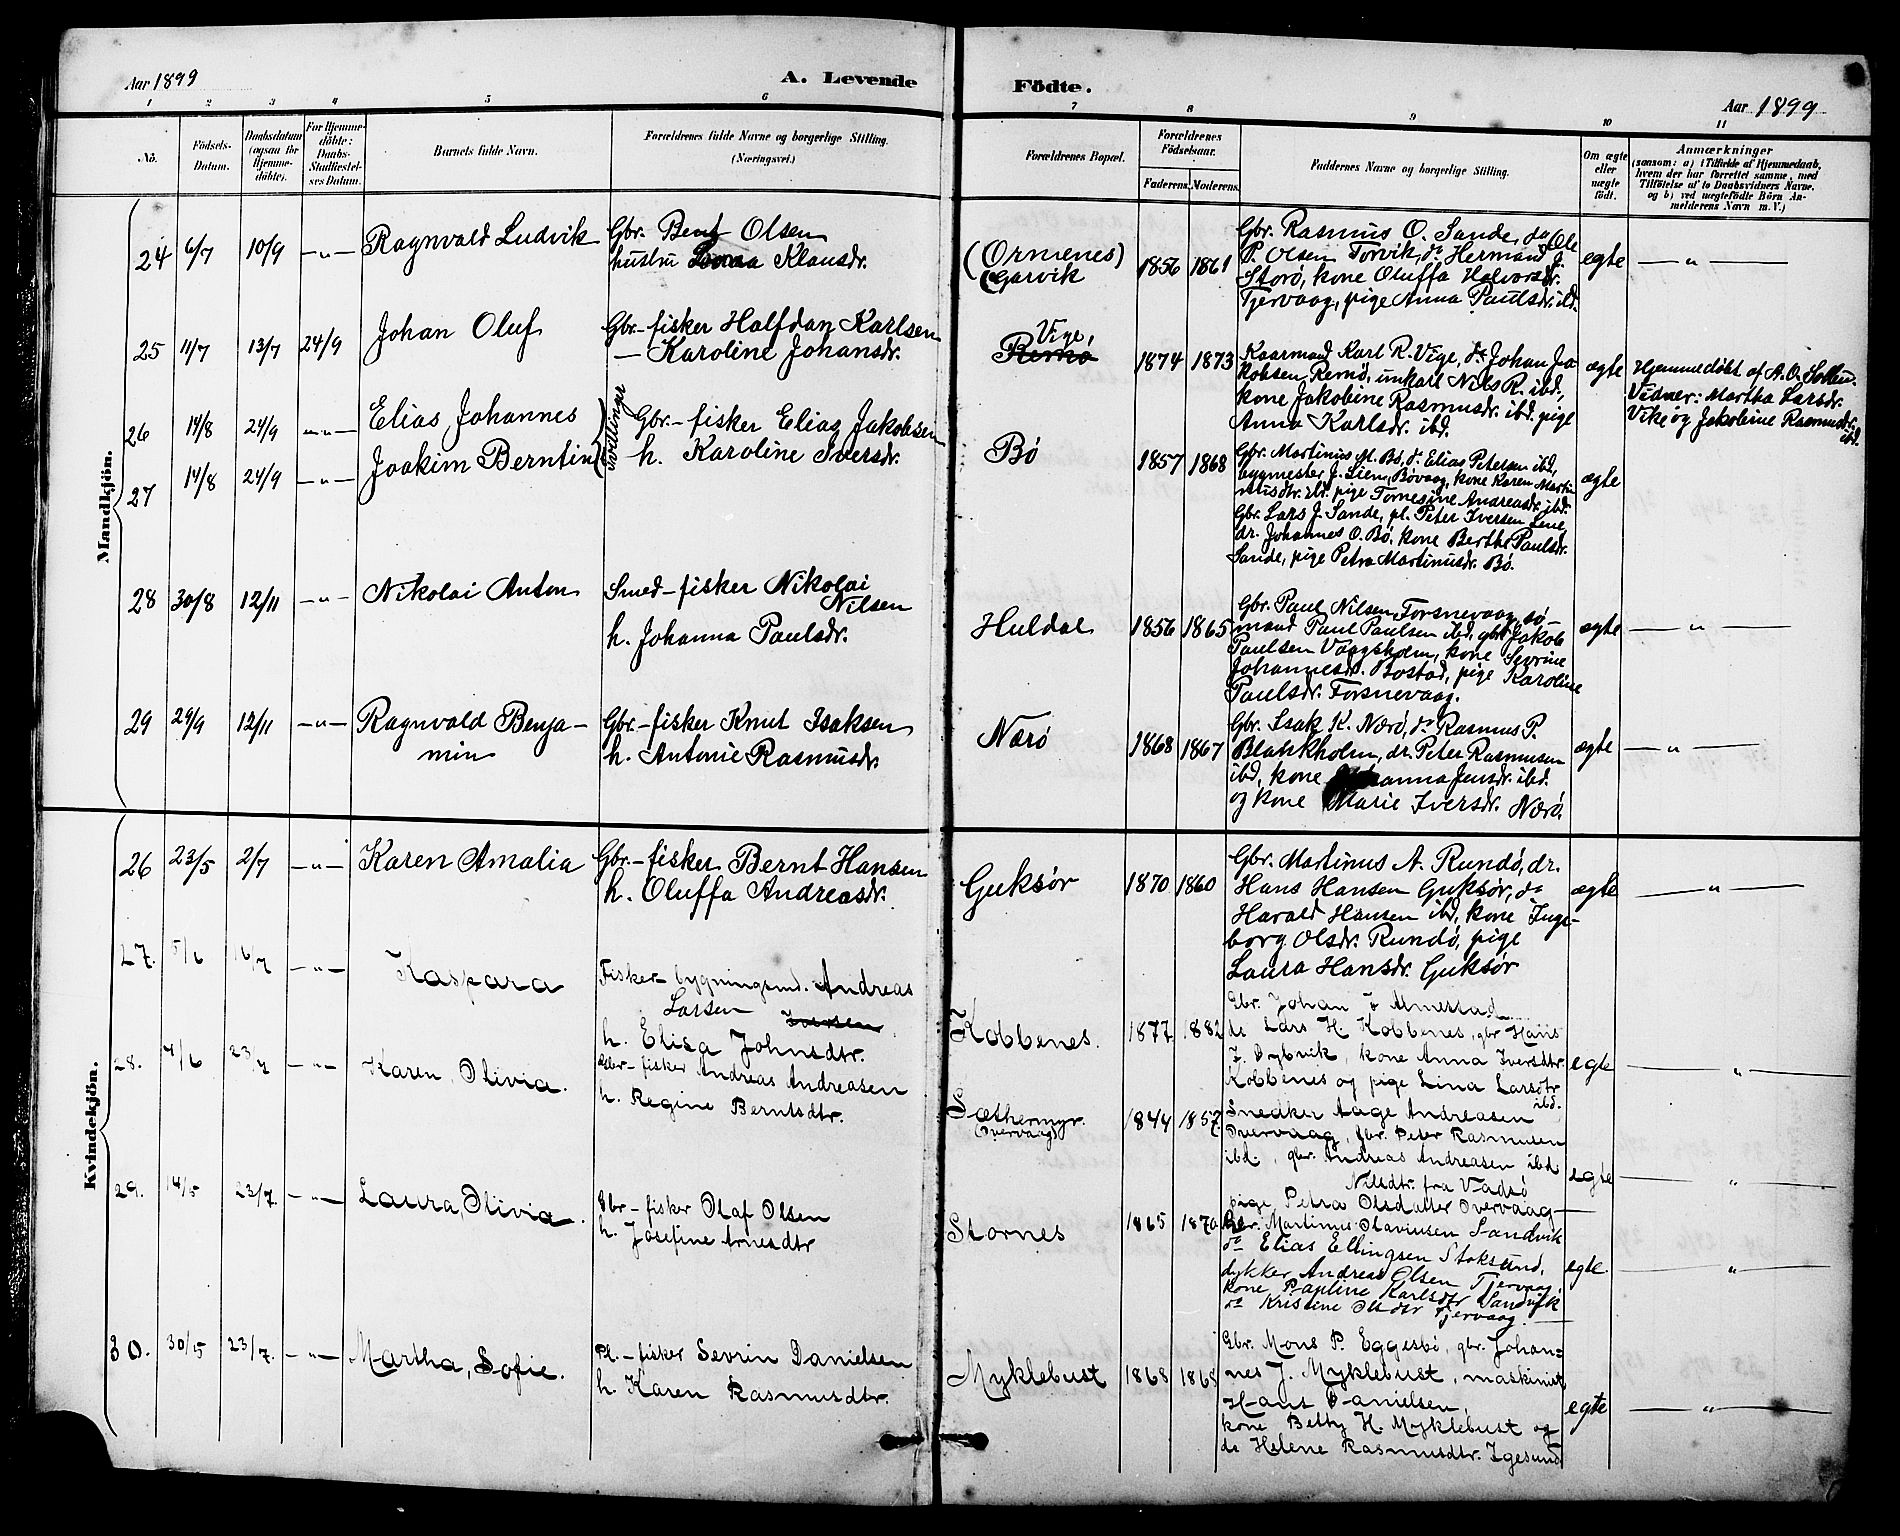 Aar 1899
A. Levende
Födte.
Aar 1899
1 2 3 4 5 6 7 8 9 10 11
No.
Födsels-Datum.
Daabsdatum (ogsaa for Hjemme-döbte).
For Hjemme-döbte: Daabs-Stadfæstel-ses Datum.
Barnets fulde Navn.
Forældrenes fulde Navne og borgerlige Stilling.
(Næringsvei.)
Forældrenes Bopæl.
Forældrenes Födselsaar.
Faderens. Moderens.
Faddernes Navne og borgerlige Stilling.
Om ægte eller uægte födt.
Anmærkninger
(saasom: a) i Tilfælde af Hjemmedaab,
hvem der har forrettet samme, med
Tilföielse af to Daabsvidners Navne.
og b) ved uægtefödte Börn An-
melderens Navn m. V.)
Mandkjön.
24 6/7 10/9 —„— Ragnvald Ludvik
Gbr. Bent Olsen
hustru Klausdr.
(Ormenes)
Garvik
1856 1861
Gbr. Rasmus O. Sande, do Ole
P. Olsen Torvik, do Herman J.
Storø, kone Oluffa Halvorsdr.
Tjervaag, pige Anna Paulsdr. ibd.
egte —„—
25 11/7 13/7 24/9 Johan Oluf
Gbr.-fisker Halfdan Karlsen
— Karoline Johansdr.
Vige,
Remø
1874 1873
Kaarmand Karl R. Vige, do Johan Ja-
kobsen, Remø, unkarl Nils R. ibd.,
kone Jakobine Rasmusdr. ibd. pige
Anna Karlsdr. ibd.
ægte
Hjemmedøbt af A. O.
Vidner: Martha Larsdr.
Vike og Jakobine Rasmusdr.
ibd.
26 14/8 24/9 —„— Elias Johannes
27 14/8 24/9 —„— Joakim Berntin
Tvillinger
Gbr.-fisker Elias Jakobsen
h. Karoline Iversdr.
Bø
1857 1868
Gbr. Martinus M. Bø, do Elias Petersen ibd,
bygmester J. Lien, Bøvaag, kone Karen Marti-
nusdtr. ibd. pige Tomesine Andreasdr. ibd.
Gbr. Lars J. Sande, pl. Peter Iversen Lene,
dr. Johannes O. Bø, kone Berthe Paulsdr.
Sande, pige Petra Martinusdr. Bø.
ægte
28 30/8 12/11 —„— Nikolai Anton
Smed-fisker Nikolai
Nilsen
h. Johanna Paulsdr.
Huldal
1856 1865
Gbr. Paul Nilsen, Torsnevaag, sø-
mand Paul Paulsen ibd, gbr. Jakob
Paulsen Vaagsholm, kone Sevrine
Johannesdr. Bostad, pige Karoline
Paulsdr. Torsnevaag.
ægte —„—
29 29/9 12/11 —„— Ragnvald Benja-
min
Gbr.-fisker Knut Isaksen
h. Antonie Rasmusdr.
Nærø
1868 1867
Gbr. Isak K. Nærø, do Rasmus P.
Blankholm, dr. Peter Rasmusen
ibd, kone Johanna Jensdr. ibd.
og kone Marie Iversdr. Nærø.
ægte —„—
Kvindekjön.
26 23/5 2/7 —„— Karen Amalia
Gbr.-fisker Bernt Hansen
h. Oluffa Andreasdr.
Guksør
1870 1860
Gbr. Martinus A. Rundø, dr.
Hans Hansen Guksør, do
Harald Hansen ibd, kone Inge-
borg Olsdr. Rundø, pige
Laura Hansdr. Guksør
ægte —„—
27. 5/6 16/7 —„— Kaspara
Fisker-bygningsmd. Andreas
Larsen Iversen
h. Elisa Johnsdtr.
Kobbenes.
1877 1882
Gbr. Johan J Almestad
do Lars H. Kobbenes, gbr Hans
J. Dybvik, kone Anna Iversdtr
Kobbenes og pige Lina Larsdtr
ibd.
egte —„—
28. 4/6 23/7 —„— Karen, Olivia.
Gbr-fisker Andreas Andreasen
h. Regine Berntsdtr.
Sæthermyr.
(Overvaag)
1844 1857
Snedker Aage Andreasen
Overvaag, gbr. Peter Rasmusen
ibd., gbr. Andreas Andreasen ibd
Nilsdtr. fra Vadsø
pige Petra Olsdatter Overvaag
egte —„—
29. 14/5 23/7. —„— Laura, Olivia.
Gbr-fisker Olaf Olsen
h. Josefine Arnesdtr
Stornes
1865 1870
Gbr. Martinus Olaviusen Sandvik
do Elias Ellingsen Stoksund,
dykker Andreas Olsen Tjervaag
kone Pauline Karlsdtr Sandvik
do Kristine Olsdtr Tjervaag.
egte. —„—
30. 30/5 23/7. —„— Martha, Sofie.
Pl.-fisker Sevrin Danielsen
h. Karen Rasmusdtr.
Myklebust
1868 1868
Gbr. Mons P. Eggesbø, gbr. Johan=
nes J. Myklebust, maskinist
Hans Danielsen,
kone Betty H. Myklebust og
do Helene Rasmusdtr. Igesund
egte —„—